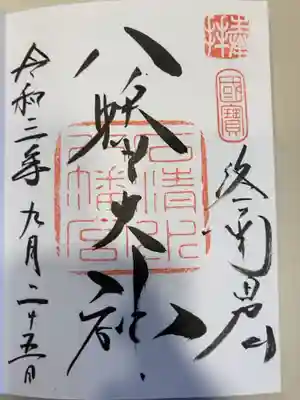 奉拝
國寶
洛南男山
八幡大神
石清水八幡宮
令和二年九月二十五日